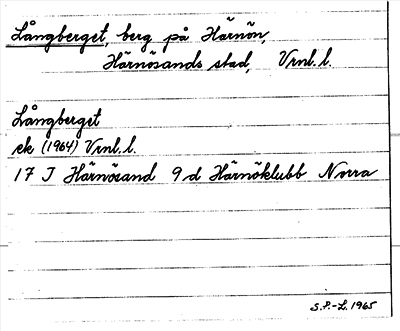 Långberget, berg på Härnön,
Härnösands stad, Vrnl. l.
Långberget
ek (1964) Vrnl. l.
17 J Härnösand 9 d Härnöklubb Norra
S.P.-L. 1965